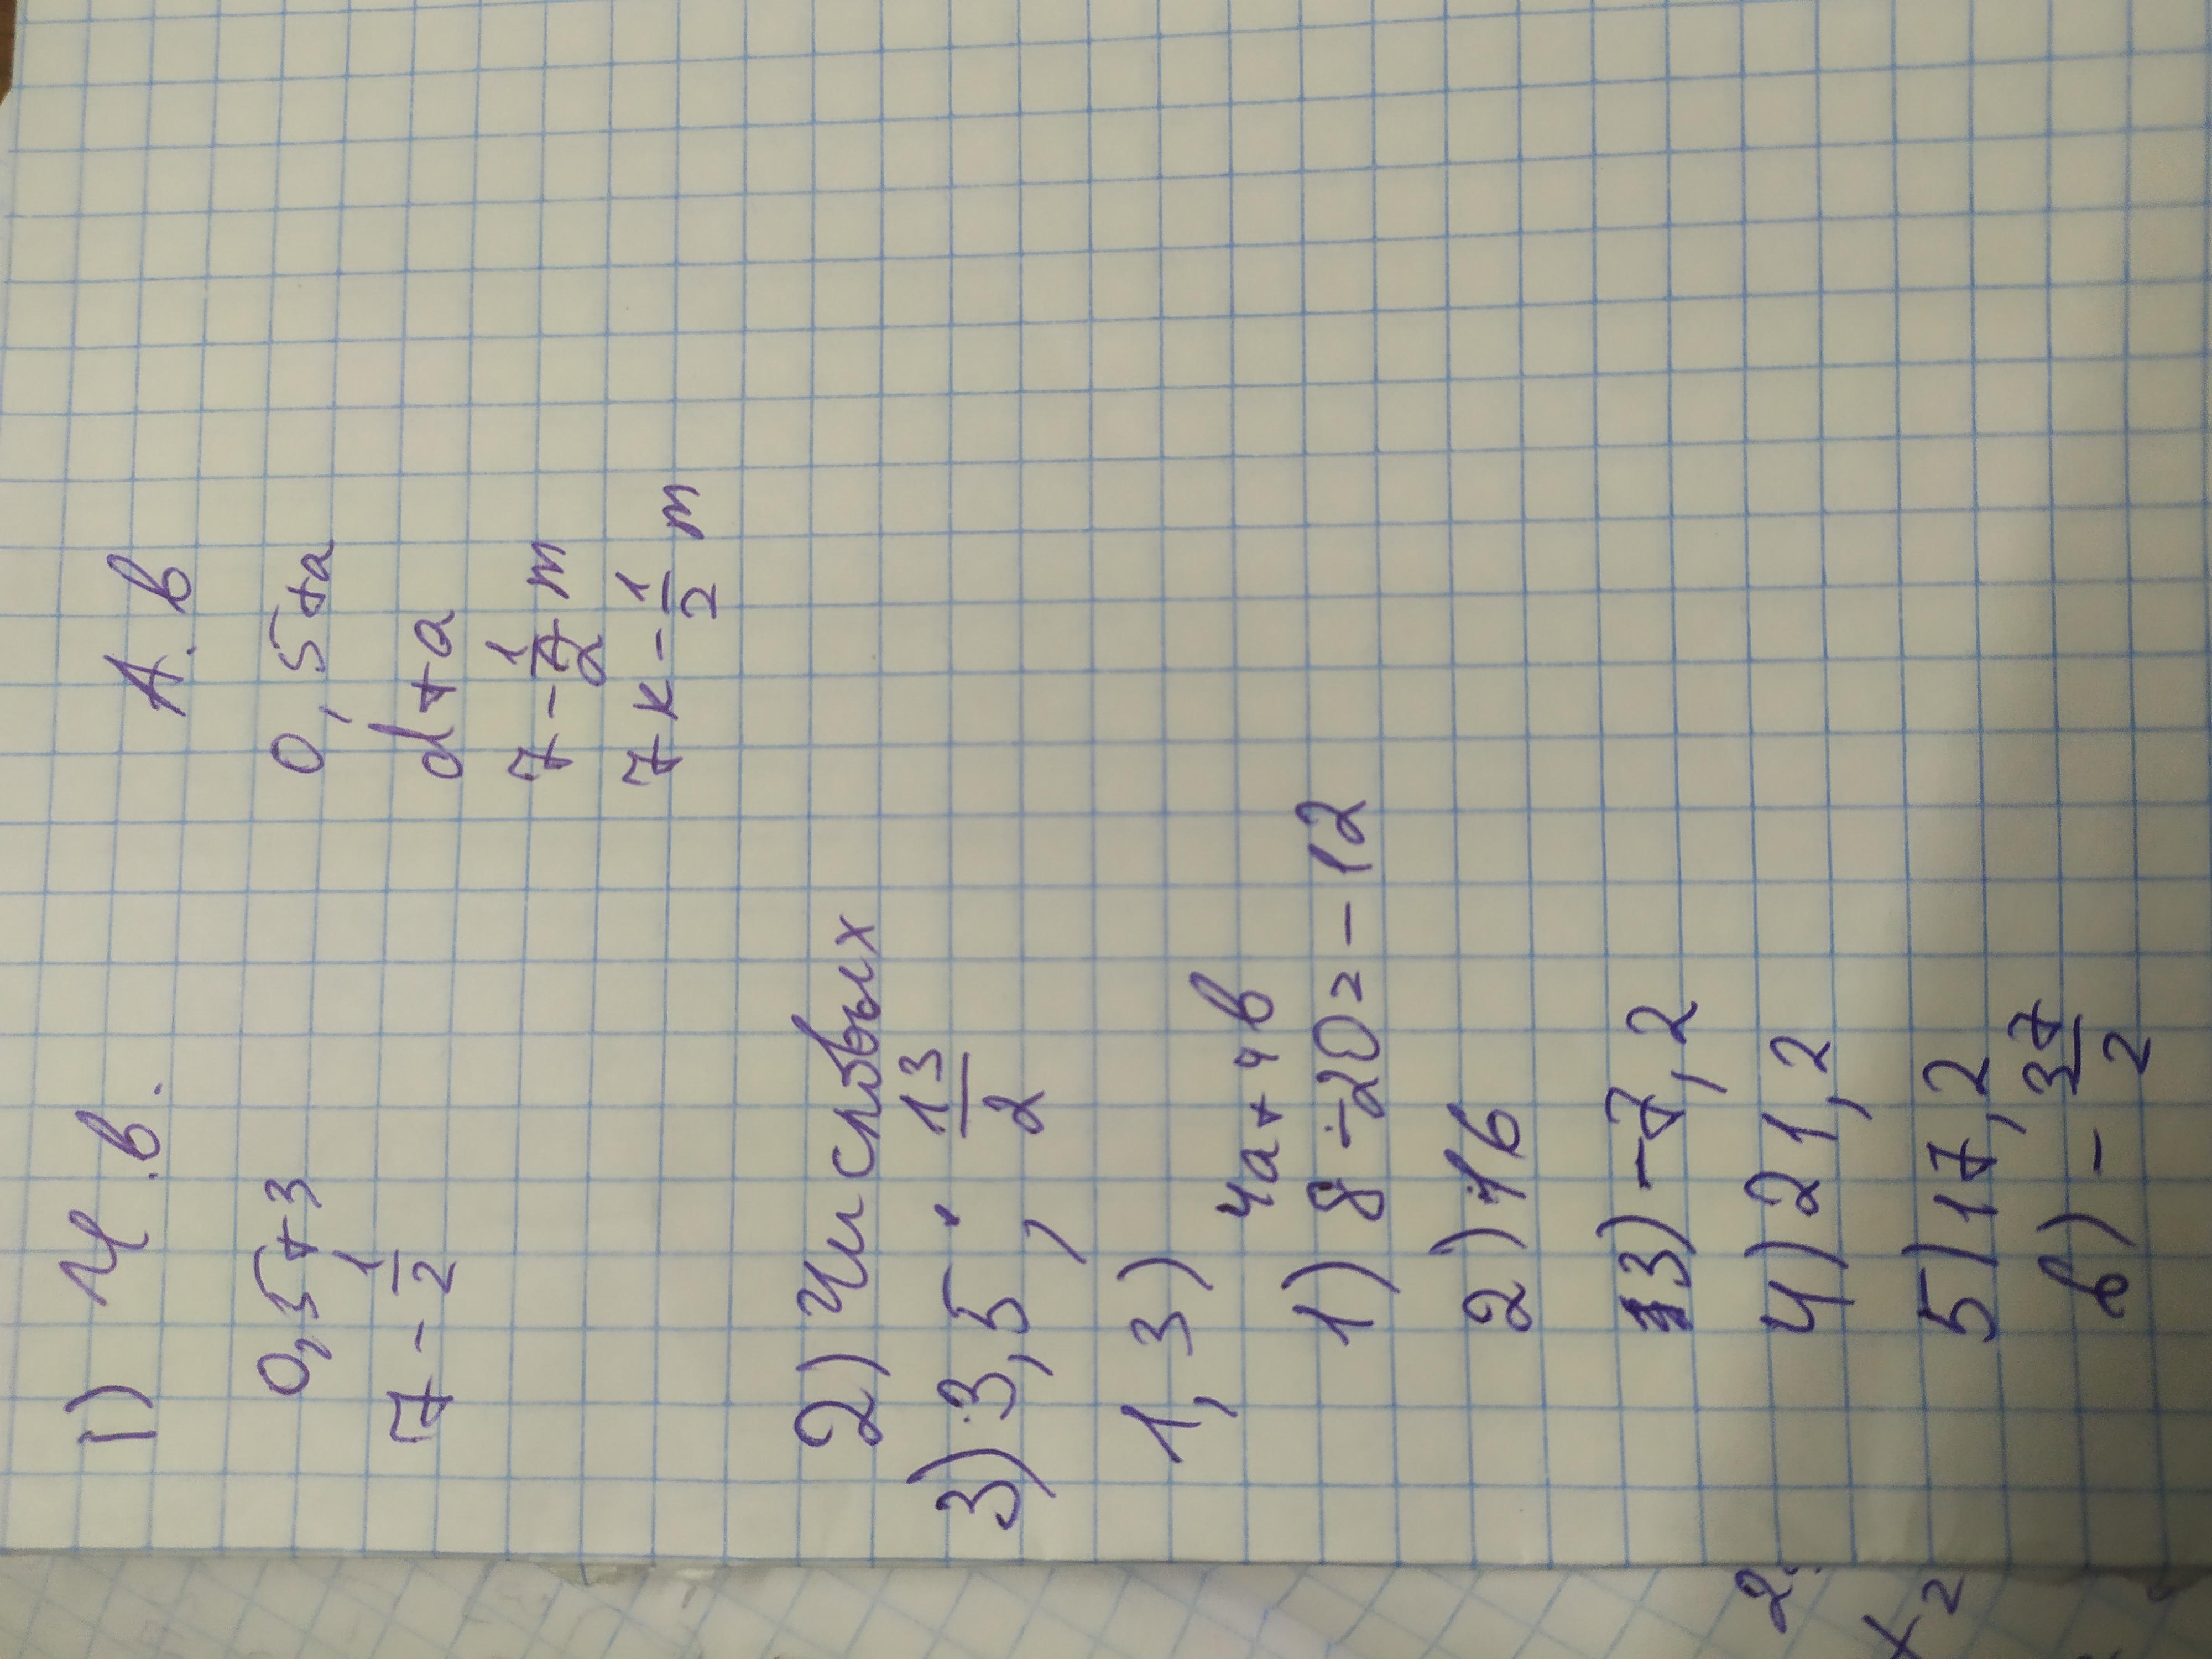 1) Ч.в. А.в
0,5+3 0,5+a
7-1/2 d+a
7-1/2 m
7k-1/2 m
2) Числовых
3) 3,5; 13/2
1,3)
4a+4в
1) 8-20=-12
2) 16
3) -7,2
4) 21,2
5) 17,2
6) -37/2
2.
x2